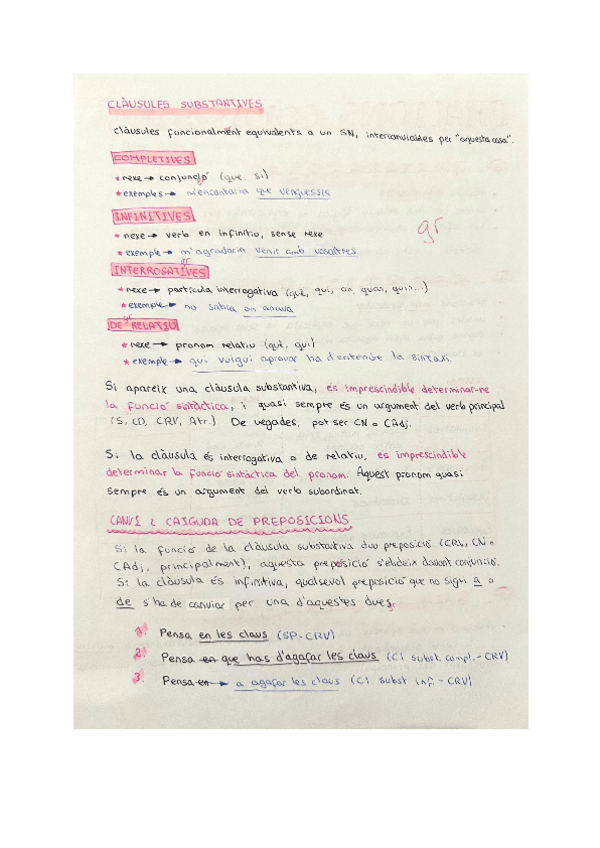 CLÀUSULES SUBSTANTIVES
clàusules funcionalment equivalents a un SN, intercanviables per "aquesta cosa".
COMPLETIVES
* nexe → conjunció (que, si)
* exemples → m'encantaria que vinguessis
INFINITIVES
* nexe → verb en infinitiu, sense nexe
* exemple → m'agradaria venir amb vosaltres
gr
gr
INTERROGATIVES
* nexe → partícula interrogativa (què, qui, on, quan, quin...)
* exemple → no sabia on anava
gr
DE RELATIU
* nexe → pronom relatiu (què, qui)
* exemple → qui vulgui aprovar ha d'entendre la sintaxi.
Si apareix una clàusula substantiva, és imprescindible determinar-ne
la funció sintàctica, i quasi sempre és un argument del verb principal
(S, CD, CRV, Atr.) De vegades, pot ser CN o CAdj.
Si la clàusula és interrogativa o de relatiu, és imprescindible
determinar la funció sintàctica del pronom. Aquest pronom quasi
sempre és un argument del verb subordinat.
CANVI I CAIGUDA DE PREPOSICIONS
Si la funció de la clàusula substantiva duu preposició (CRV, CN o
CAdj, principalment), aquesta preposició s'elideix davant conjunció.
Si la clàusula és infinitiva, qualsevol preposició que no sigui a o
de s'ha de canviar per una d'aquestes dues.
1. Pensa en les claus (SP-CRV)
2. Pensa en que has d'agafar les claus (Cl. subst. compl. - CRV)
3. Pensa en → a agafar les claus (Cl. subst inf. - CRV)